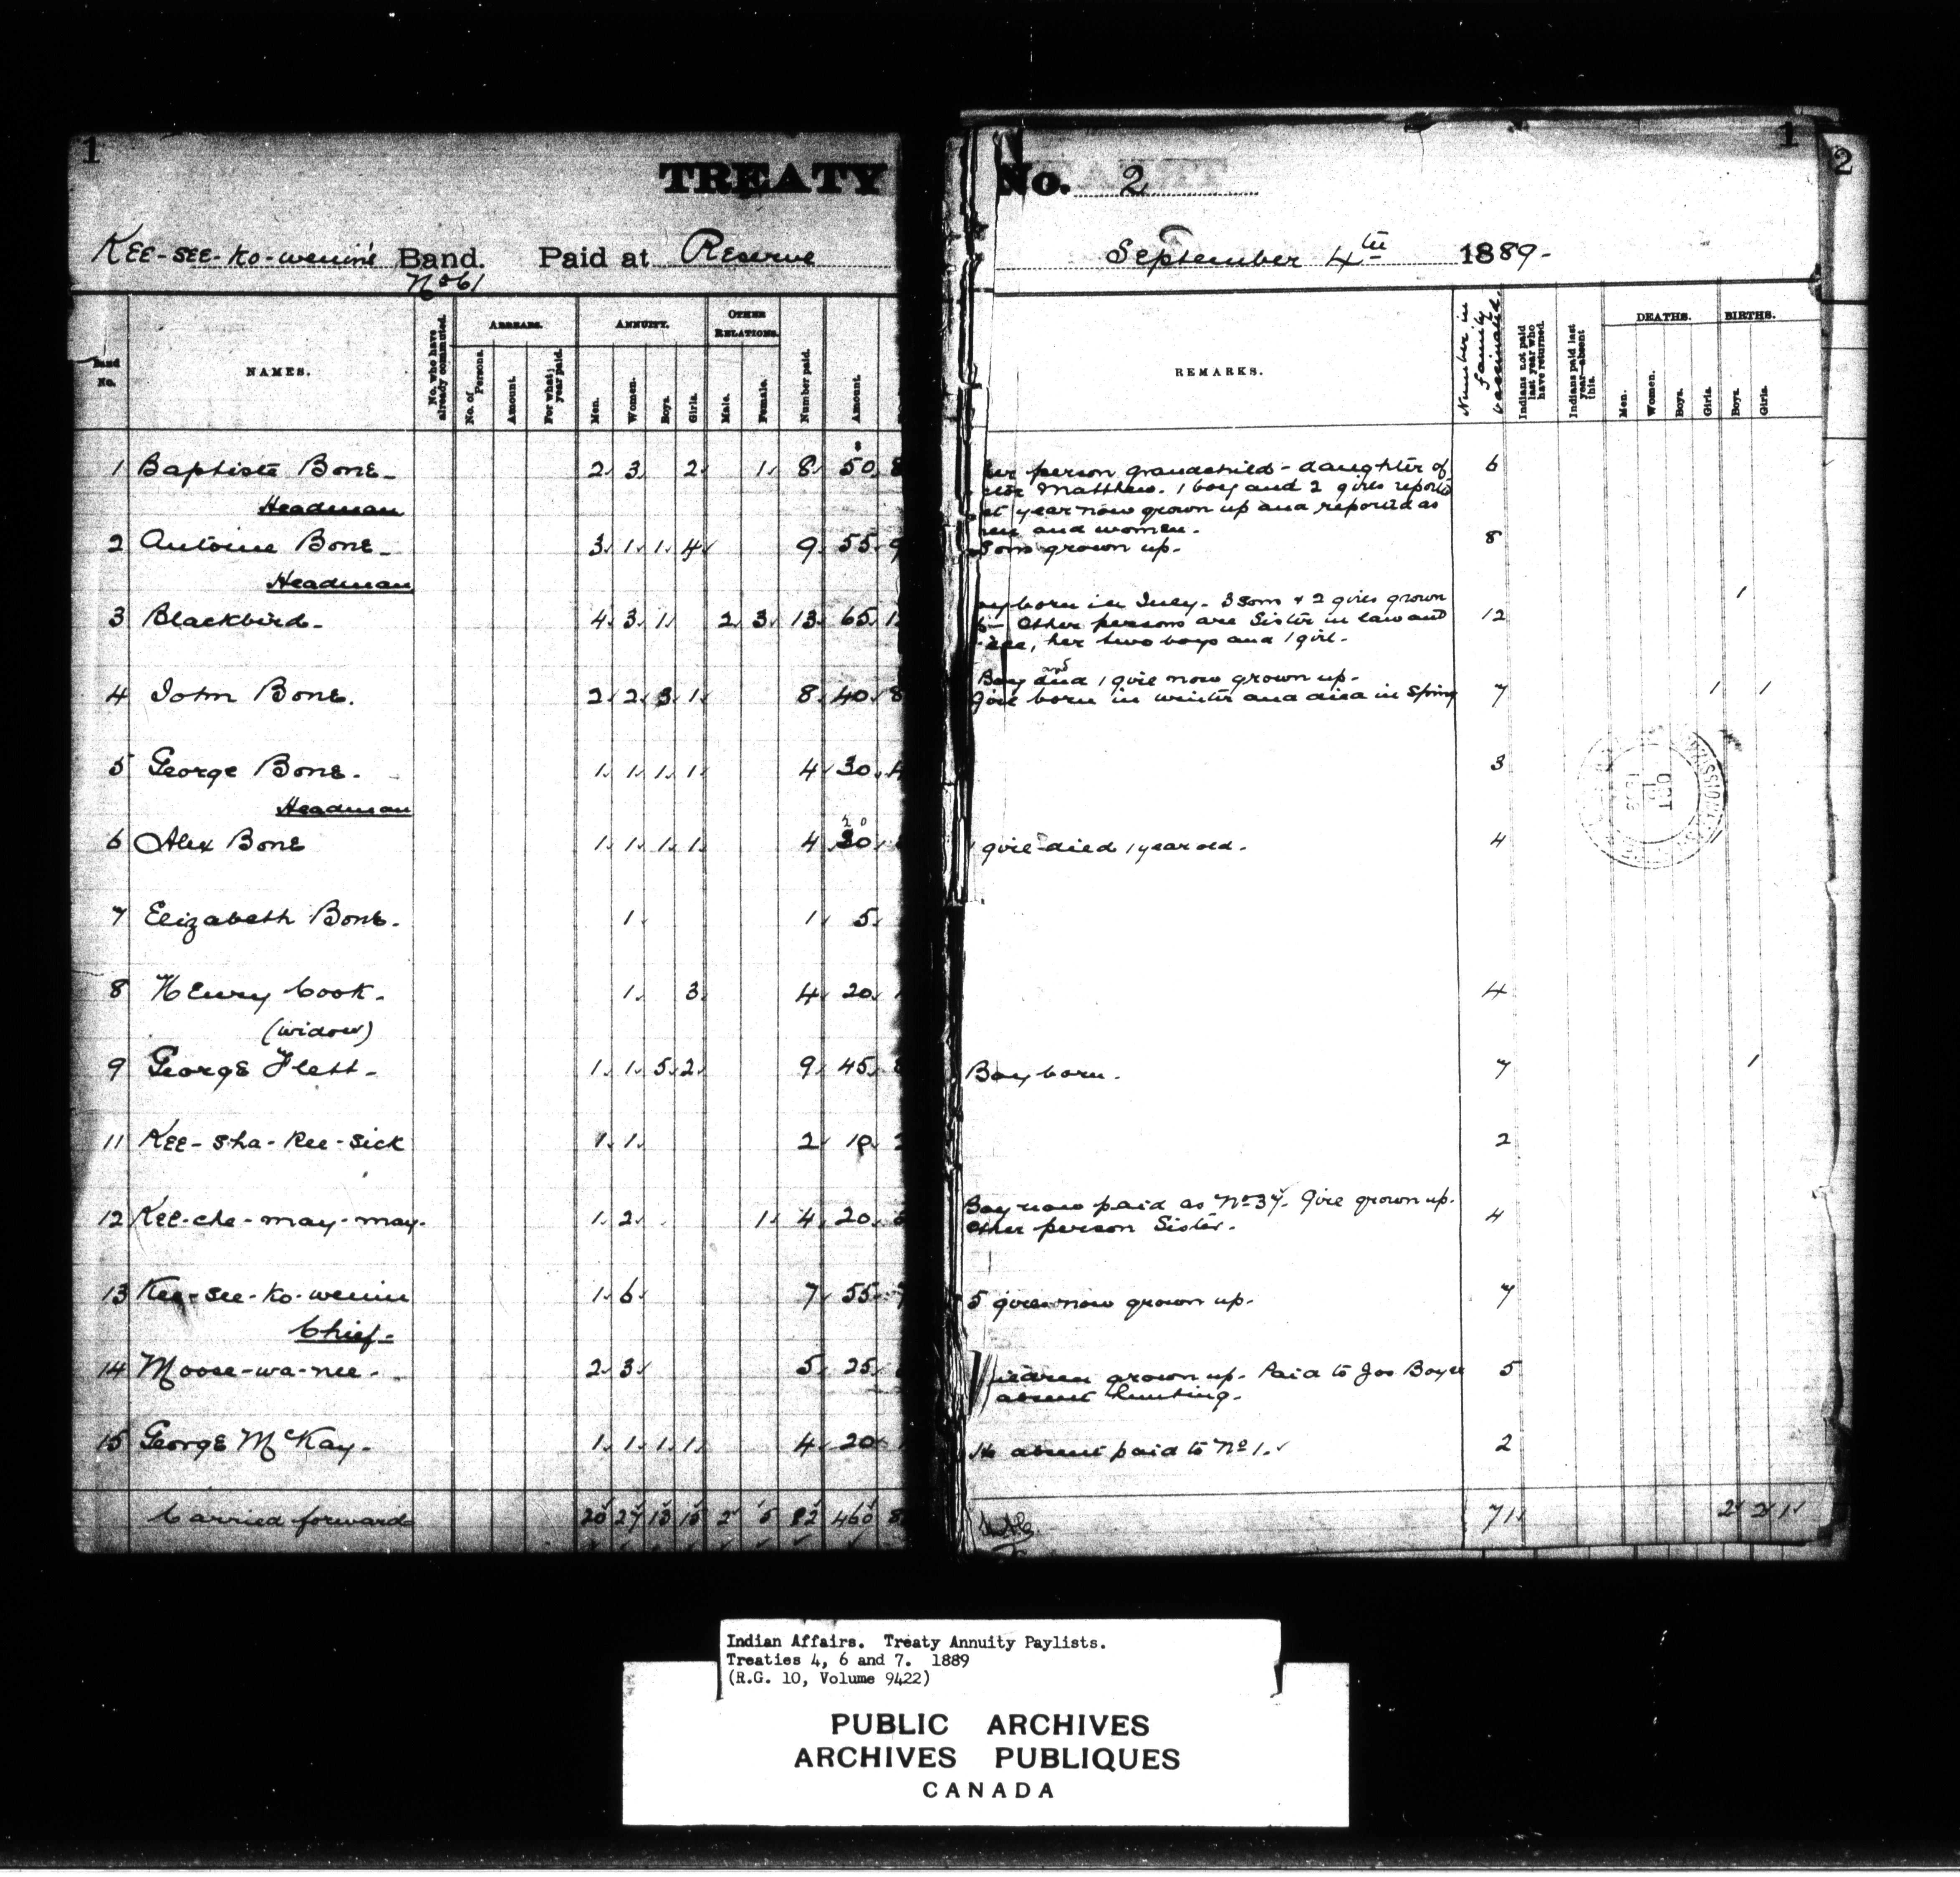 1
TREATY
Kee-see-ko-wenin's Band. Paid at Reserve
No 61
Band No.
NAMES.
No. who have already commuted.
ARREARS.
No. of Persons.
Amount.
For what year paid.
ANNUITY.
Men.
Women.
Boys.
Girls.
OTHER RELATIONS.
Male.
Female.
Number paid.
Amount.
1 Baptiste Bone- 2 3 2 1 8 50 8
Headman
2 Antoine Bone- 3 1 1 4 9 55 9
Headman
3 Blackbird- 4 3 1 2 3 13 65 1
4 John Bone. 2 2 3 1 8 40 8
5 George Bone. 1 1 1 1 4 30 4
Headman
20
6 Alex Bone 1 1 1 1 4 30
7 Elizabeth Bone. 1 1 5
8 Henry Cook. 1 3 4 20
(widow)
9 George Flett- 1 1 5 2 9 45 8
11 Kee-sha-kee-sick 1 1 2 10 2
12 Kee-che-may-may. 1 2 1 4 20
13 Kee-see-ko-wenin 1 6 7 55 7
Chief-
14 Moose-wa-nee- 2 3 5 25
15 George McKay- 1 1 1 1 4 20
Carried forward 20 27 13 15 2 5 82 460 8
1
2
No. 2
September 4th 1889-
REMARKS.
Number in family vaccinated.
Indians not paid last year who have returned.
Indians paid last year—absent this.
DEATHS.
Men.
Women.
Boys.
Girls.
BIRTHS.
Boys.
Girls.
her person grandchild - daughter of 6
Matthew. 1 boy and 2 girls reported
year now grown up and reported as
men and women.
Sons grown up. 8
born in July. 3 sons & 2 girls grown 1
Other persons are Sister in law and 12
her two boys and 1 girl-
and
Boy and 1 girl now grown up-
Girl born in winter and died in Spring 7 1 1
3
OCT
1 girl died 1 year old. 4
4
Boy born. 7 1
2
Boy now paid as No 37. Girl grown up.
Other person Sister. 4
5 girls now grown up. 7
grown up. Paid to Jos Boyer 5
absent hunting.
absent paid to No 1. 2
71 2 2 1
Indian Affairs. Treaty Annuity Paylists.
Treaties 4, 6 and 7. 1889
(R.G. 10, Volume 9422)
PUBLIC ARCHIVES
ARCHIVES PUBLIQUES
CANADA